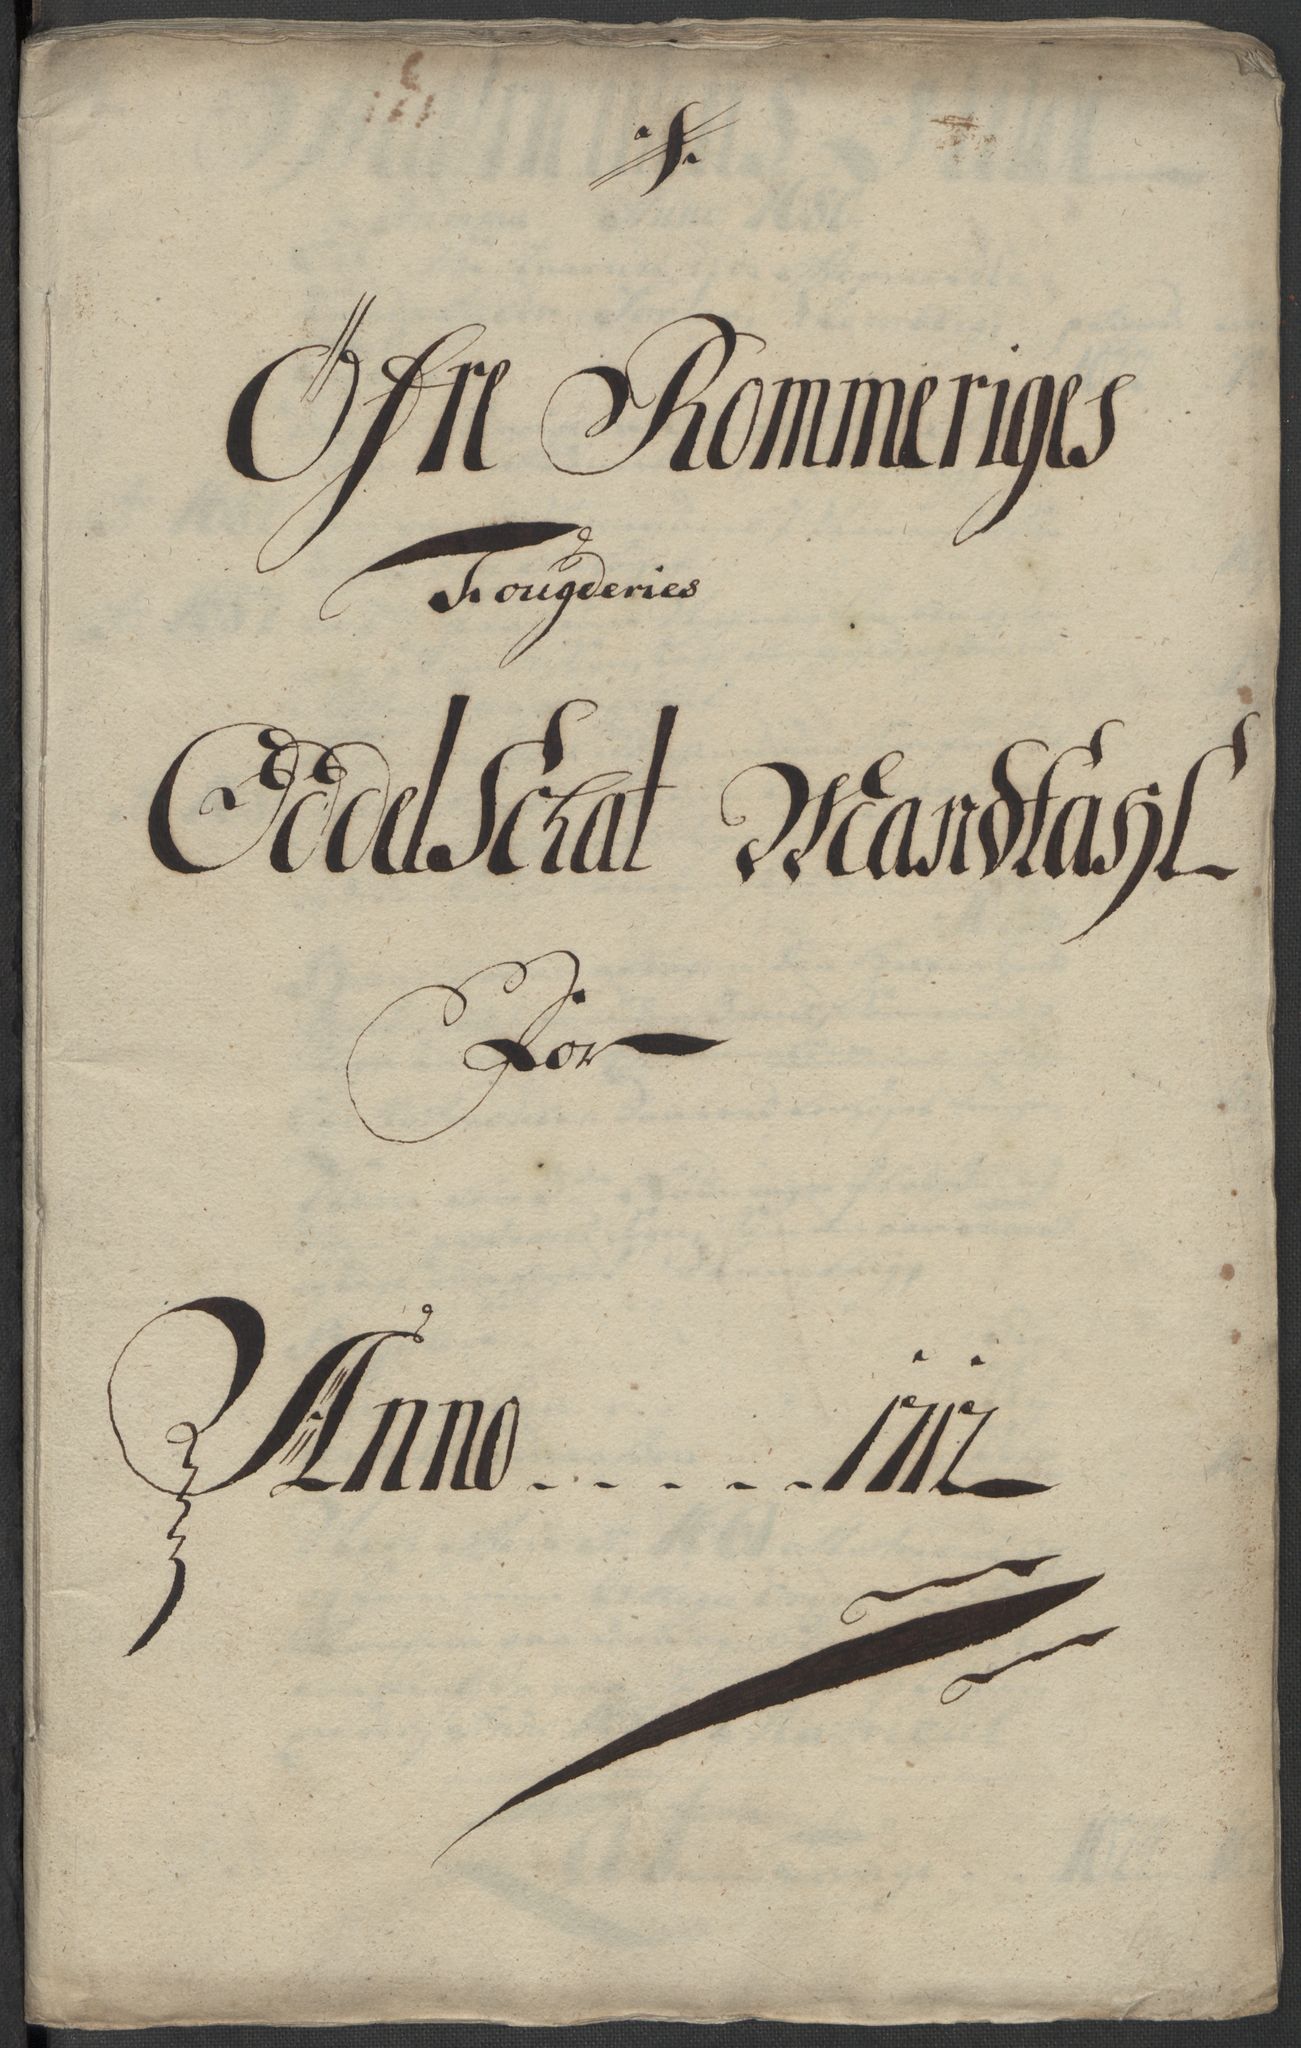 Öfre Rommeriges
Fougderies
Oddel Schat Mandtahl
For
Anno . . . . . 1712